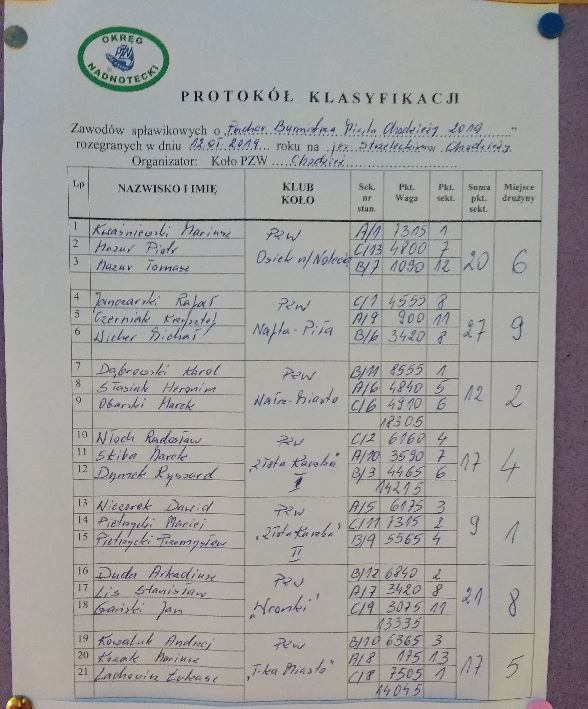 OKRĘG
PZW
NADNOTECKI
PROTOKÓŁ KLASYFIKACJI
Zawodów spławikowych o „Puchar Burmistrza Miasta Chodzieży 2019”
rozegranych w dniu 12.05.2019 roku na jez. Strzeleckim w Chodzieży
Organizator: Koło PZW Chodzież
Lp NAZWISKO I IMIĘ KLUB KOŁO Sek. nr stan. Pkt. Waga Pkt. sekt. Suma pkt. sekt. Miejsce drużyny
1 Kwaśniewski Mariusz PZW A/1 7315 1
2 Mazur Piotr C/13 4800 7
3 Mazur Tomasz Osiek n/Notecią B/7 1090 12 20 6
4 Janczarski Rafał PZW C/1 4555 8
5 Czerniak Krzysztof A/9 900 11
6 Wicher Michał Nafta-Piła B/6 3420 8 27 9
7 Dąbrowski Karol PZW B/11 8555 1
8 Stasiak Heronim A/6 4840 5
9 Obarski Marek Miasto C/6 4910 6 12 2
18305
10 Włoch Radosław PZW C/2 6160 4
11 Skiba Marek „Złota Karaba” A/10 3590 7
12 Dymek Ryszard I B/3 4465 6 17 4
14215
13 Wieczorek Dawid PZW A/5 6175 3
14 Pietrzycki Maciej „Złota Karaba” C/11 7315 2
15 Pietrzycki Przemysław II B/9 5565 4 9 1
16 Duda Arkadiusz PZW B/12 6840 2
17 Lis Stanisław A/7 3420 8
18 Gański Jan „Wronki” C/9 3075 11 21 8
13335
19 Kowaluk Andrzej PZW B/10 6365 3
20 Mariusz A/8 175 13
21 Łukasz „T-ka Miasto” C/8 7505 1 17 5
14045